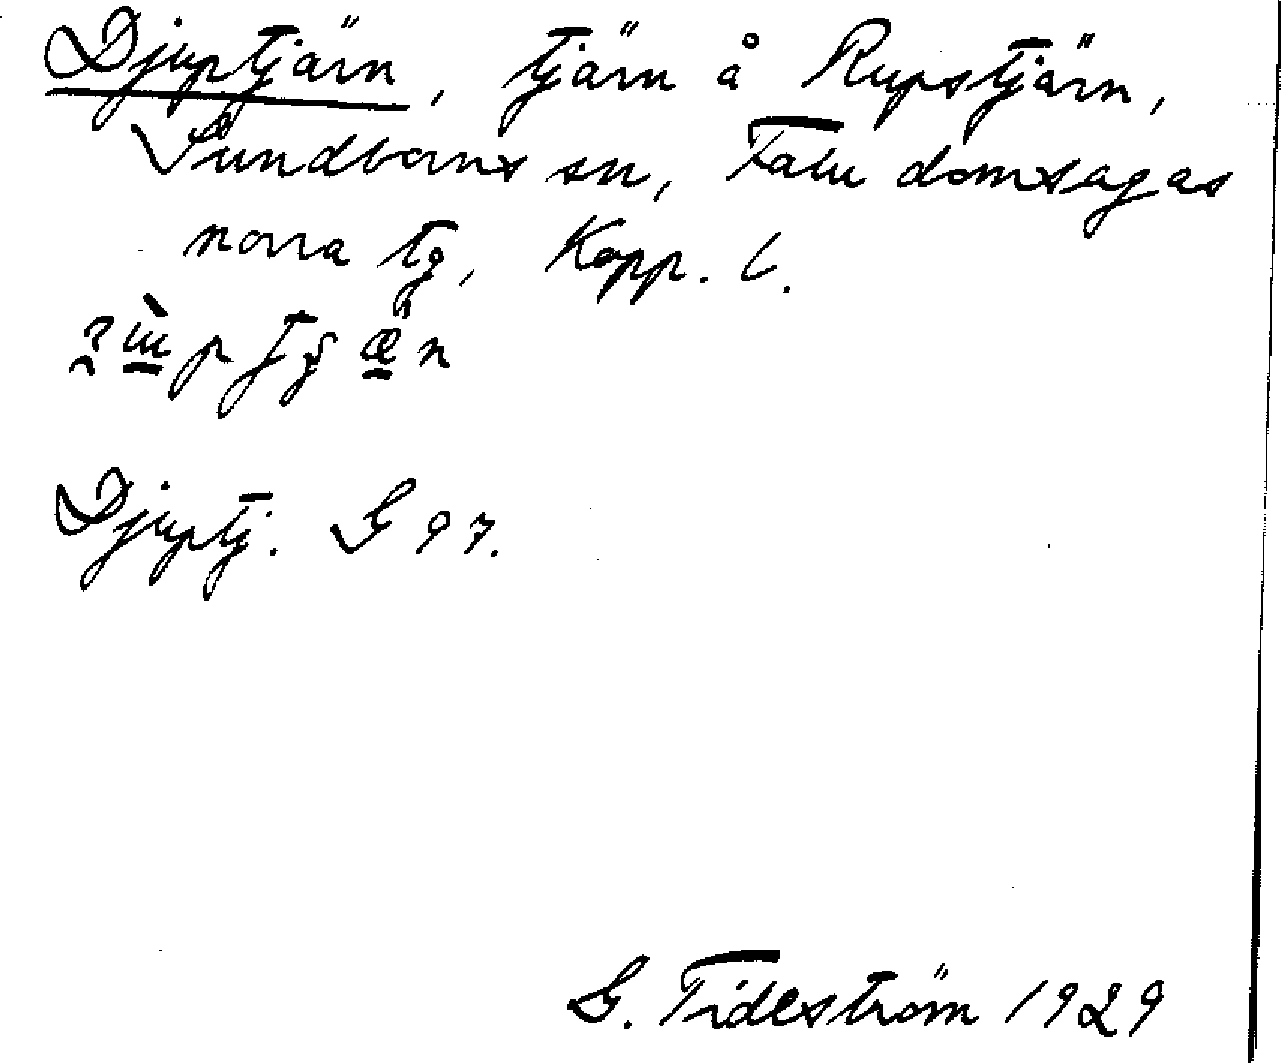 Djuptjärn, tjärn å Rupstjärn,
Sundborns sn, Falu domsagas
norra tg, Kopp. l.
Djuptj. G 97.
G. Tideström 1929